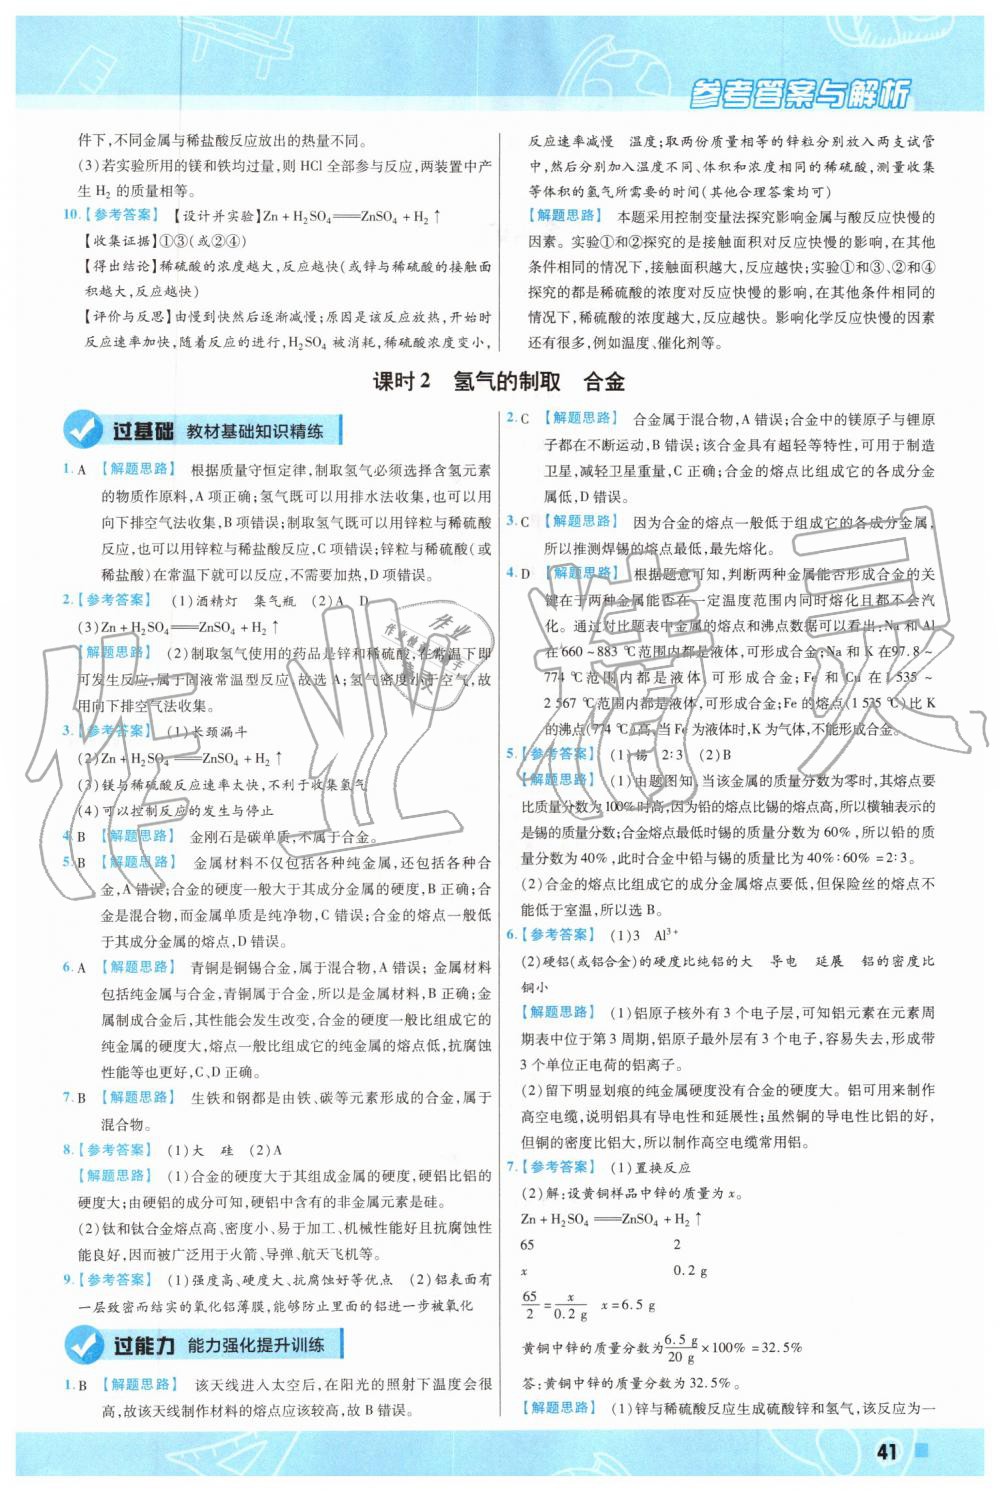 参考答案与解析
件下,不同金属与稀盐酸反应放出的热量不同。
(3)若实验所用的镁和铁均过量,则 HCl 全部参与反应,两装置中产
生 H₂ 的质量相等。
10.【参考答案】 【设计并实验】Zn + H₂SO₄══ZnSO₄ + H₂↑
【收集证据】①③(或②④)
【得出结论】稀硫酸的浓度越大,反应越快(或锌与稀硫酸的接触面
积越大,反应越快)
【评价与反思】由慢到快然后逐渐减慢;原因是该反应放热,开始时
反应速率加快,随着反应的进行,H₂SO₄ 被消耗,稀硫酸浓度变小,
反应速率减慢 温度;取两份质量相等的锌粒分别放入两支试管
中,然后分别加入温度不同、体积和浓度相同的稀硫酸,测量收集
等体积的氢气所需要的时间(其他合理答案均可)
【解题思路】 本题采用控制变量法探究影响金属与酸反应快慢的
因素。实验①和②探究的是接触面积对反应快慢的影响,在其他
条件相同的情况下,接触面积越大,反应越快;实验①和③、②和④
探究的都是稀硫酸的浓度对反应快慢的影响,在其他条件相同的
情况下,稀硫酸的浓度越大,反应越快。影响化学反应快慢的因素
还有很多,例如温度、催化剂等。
课时2 氢气的制取 合金
过基础 教材基础知识精练
1. A 【解题思路】 根据质量守恒定律,制取氢气必须选择含氢元素
的物质作原料,A 项正确;氢气既可以用排水法收集,也可以用
向下排空气法收集,B 项错误;制取氢气既可以用锌粒与稀硫酸
反应,也可以用锌粒与稀盐酸反应,C 项错误;锌粒与稀硫酸(或
稀盐酸)在常温下就可以反应,不需要加热,D 项错误。
2.【参考答案】 (1)酒精灯 集气瓶 (2)A D
(3)Zn + H₂SO₄══ZnSO₄ + H₂↑
【解题思路】 (2)制取氢气使用的药品是锌和稀硫酸,在常温下即
可发生反应,属于固液常温型反应,故选 A;氢气密度小于空气,故
用向下排空气法收集。
3.【参考答案】 (1)长颈漏斗
(2)Zn + H₂SO₄══ZnSO₄ + H₂↑
(3)镁与稀硫酸反应速率太快,不利于收集氢气
(4)可以控制反应的发生与停止
4. B 【解题思路】 金刚石是碳单质,不属于合金。
5. B 【解题思路】 金属材料不仅包括各种纯金属,还包括各种合
金,A 错误;合金的硬度一般大于其成分金属的硬度,B 正确;合
金是混合物,而金属单质是纯净物,C 错误;合金的熔点一般低
于其成分金属的熔点,D 错误。
6. A 【解题思路】 青铜是铜锡合金,属于混合物,A 错误;金属材料
包括纯金属与合金,青铜属于合金,所以是金属材料,B 正确;金
属制成合金后,其性能会发生改变,合金的硬度一般比组成它的
纯金属的硬度大,熔点一般比组成它的纯金属的熔点低,抗腐蚀
性能等也更好,C、D 正确。
7. B 【解题思路】 生铁和钢都是由铁、碳等元素形成的合金,属于
混合物。
8.【参考答案】 (1)大 硅 (2)A
【解题思路】 (1)合金的硬度大于其组成金属的硬度,硬铝比铝的
硬度大;由硬铝的成分可知,硬铝中含有的非金属元素是硅。
(2)钛和钛合金熔点高、密度小、易于加工、机械性能好且抗腐蚀性
能良好,因而被广泛用于火箭、导弹、航天飞机等。
9.【参考答案】 (1)强度高、硬度大、抗腐蚀好等优点 (2)铝表面有
一层致密而结实的氧化铝薄膜,能够防止里面的铝进一步被氧化
过能力 能力强化提升训练
1. B 【解题思路】 该天线进入太空后,在阳光的照射下温度会很
高,故该天线制作材料的熔点应该较高,故 B 错误。
2. C 【解题思路】 合金属于混合物,A 错误;合金中的镁原子与锂原
子都在不断运动,B 错误;该合金具有超轻等特性,可用于制造
卫星,减轻卫星重量,C 正确;合金的熔点比组成它的各成分金
属低,D 错误。
3. C 【解题思路】 因为合金的熔点一般低于组成它的各成分金属,
所以推测焊锡的熔点最低,最先熔化。
4. D 【解题思路】 根据题意可知,判断两种金属能否形成合金的关
键在于两种金属能否在一定温度范围内同时熔化且都不会汽
化。通过对比题表中金属的熔点和沸点数据可以看出:Na 和 Al
在 660 ~ 883 ℃范围内都是液体,可形成合金;Na 和 K 在 97.8 ~
774 ℃范围内都是液体,可形成合金;Fe 和 Cu 在 1 535 ~
2 567 ℃范围内都是液体,可形成合金;Fe 的熔点(1 535 ℃)比 K
的沸点(774 ℃)高,当 Fe 为液体时,K 为气体,不能形成合金。
5.【参考答案】 (1)锡 2∶3 (2)B
【解题思路】 (1)由题图知,当该金属的质量分数为零时,其熔点要
比质量分数为 100% 时高,因为铅的熔点比锡的熔点高,所以横轴表示的
是锡的质量分数;合金熔点最低时锡的质量分数为 60%,所以铅的质
量分数为 40%,此时合金中铅与锡的质量比为 40%∶60% = 2∶3。
(2)合金的熔点比组成它的成分金属熔点要低,但保险丝的熔点不
能低于室温,所以选 B。
6.【参考答案】 (1)3 Al³⁺
(2)硬铝(或铝合金)的硬度比纯铝的大 导电 延展 铝的密度比
铜小
【解题思路】 (1)铝原子核外有 3 个电子层,可知铝元素在元素周
期表中位于第 3 周期,铝原子最外层有 3 个电子,容易失去,形成带
3 个单位正电荷的铝离子。
(2)留下明显划痕的纯金属硬度没有合金的硬度大。铝可用来制作
高空电缆,说明铝具有导电性和延展性;虽然铜的导电性比铝的好,
但铜的密度比铝大,所以制作高空电缆常用铝。
7.【参考答案】 (1)置换反应
(2)解:设黄铜样品中锌的质量为 x。
Zn + H₂SO₄══ZnSO₄ + H₂↑
65 2
x 0.2 g
65/2 = x/0.2 g x = 6.5 g
黄铜中锌的质量分数为 6.5 g/20 g × 100% = 32.5%
答:黄铜中锌的质量分数为 32.5%。
【解题思路】 (1)锌与稀硫酸反应生成硫酸锌和氢气,该反应为一
41
作业精灵